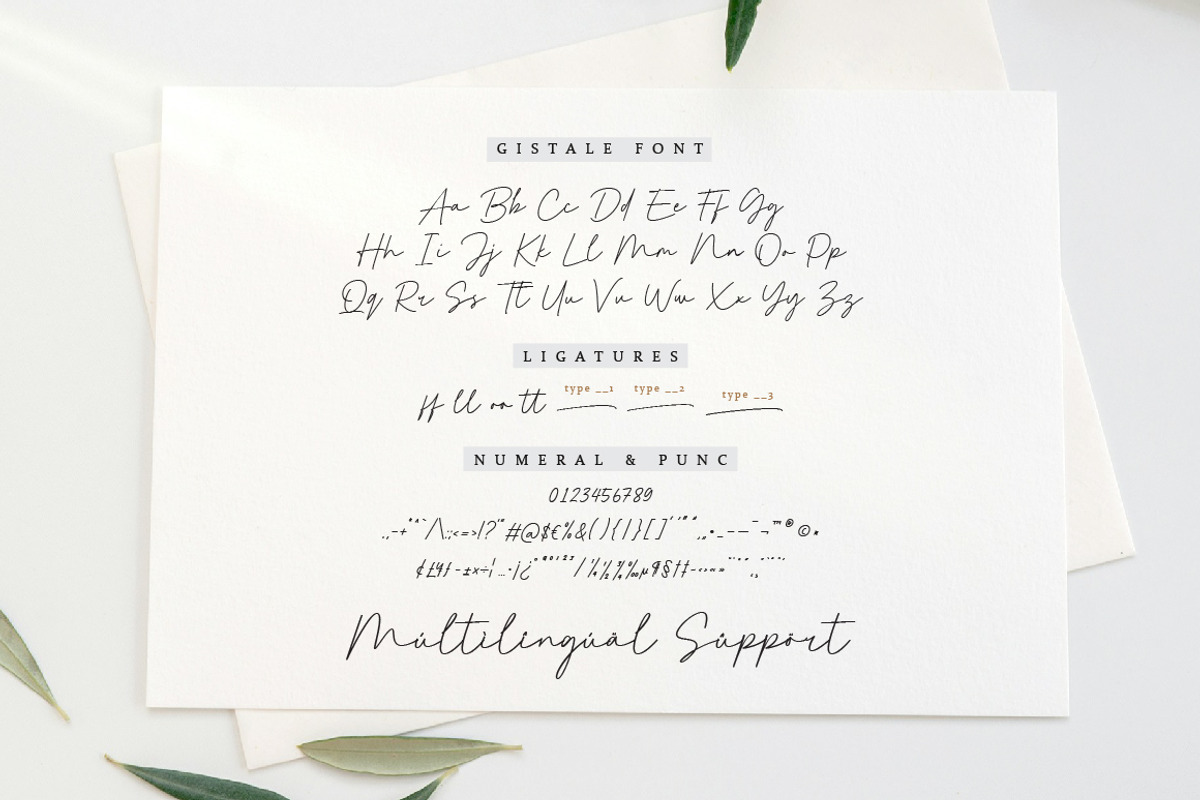 GISTALE FONT
Aa Bb Cc Dd Ee Ff Gg
Hh Ii Jj Kk Ll Mm Nn Oo Pp
Qq Rr Ss Tt Uu Vv Ww Xx Yy Zz
LIGATURES
ff ll oo tt type __1 type __2 type __3
NUMERAL & PUNC
0123456789
#@$€%&(){|}[]
Múltilingüàl Süppört